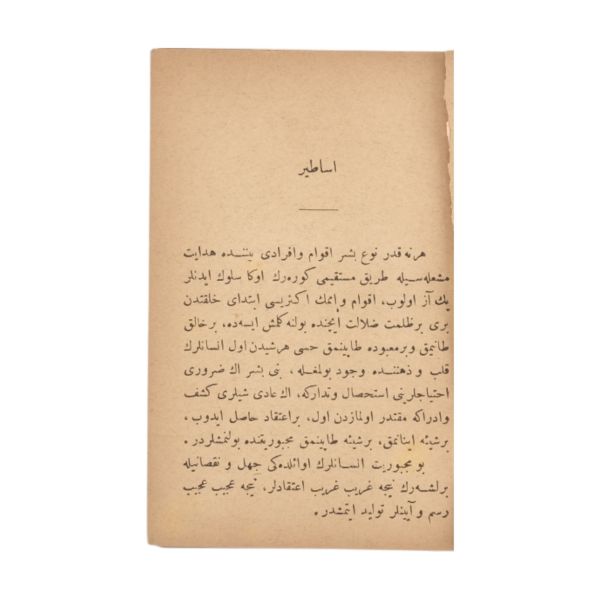 اساطير
هر نه قدر نوع بشر اقوام وافرادى بيننده هدايت
مشعله سيله طريق مستقيمى كوره رك اوكا سلوك ايدنلر
پك آز اولوب، اقوام وامك اكثريسى ابتداى خلقتدن
برى بر ظلمت ضلالت ايچنده بولنه كلمش ايسه ده، بر خالق
طانيمق وبر معبوده طاپينمق حسى هر شيدن اول انسانلرك
قلب و ذهننده وجود بولمغله، بنى بشر اك ضرورى
احتياجلرينى استحصال وتداركه، اك عادى شيلرى كشف
وادراكه مقتدر اولمازدن اول، بر اعتقاد حاصل ايدوب،
برشيئه اينانمق، برشيئه طاپينمق مجبوريتنده بولنمشلردر.
بو مجبوريت انسانلرك اوائلده كى جهل و نقصانيله
برلشه رك نيجه غريب غريب اعتقادلر، نيجه عجيب عجيب
رسم و آيينلر توليد ايتمشدر.